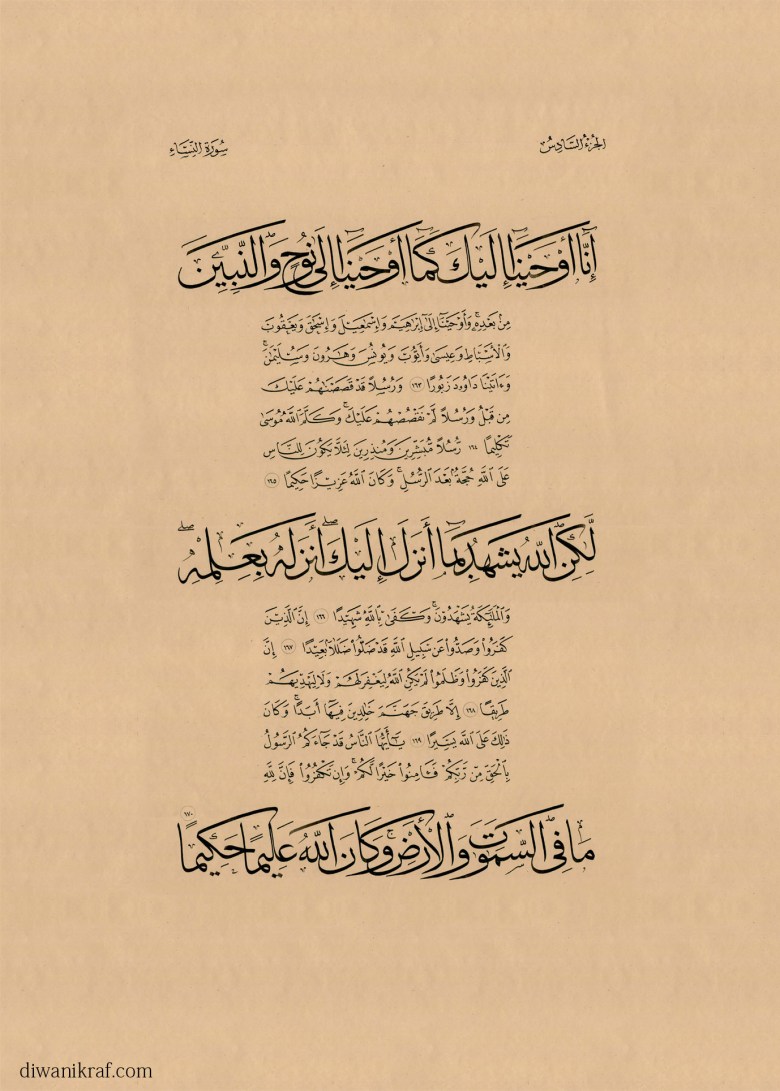 الجزء السادس
سورة النساء
إِنَّا أَوْحَيْنَا إِلَيْكَ كَمَا أَوْحَيْنَا إِلَى نُوحٍ وَالنَّبِيِّينَ
مِنْ بَعْدِهِ وَأَوْحَيْنَا إِلَى إِبْرَاهِيمَ وَإِسْمَاعِيلَ وَإِسْحَاقَ وَيَعْقُوبَ
وَالْأَسْبَاطِ وَعِيسَى وَأَيُّوبَ وَيُونُسَ وَهَارُونَ وَسُلَيْمَانَ
وَءَاتَيْنَا دَاوُودَ زَبُورًا ١٦٣ وَرُسُلًا قَدْ قَصَصْنَاهُمْ عَلَيْكَ
مِن قَبْلُ وَرُسُلًا لَمْ نَقْصُصْهُمْ عَلَيْكَ وَكَلَّمَ اللَّهُ مُوسَى
تَكْلِيمًا ١٦٤ رُسُلًا مُبَشِّرِينَ وَمُنذِرِينَ لِئَلَّا يَكُونَ لِلنَّاسِ
عَلَى اللَّهِ حُجَّةٌ بَعْدَ الرُّسُلِ وَكَانَ اللَّهُ عَزِيزًا حَكِيمًا ١٦٥
لَكِنِ اللَّهُ يَشْهَدُ بِمَا أَنزَلَ إِلَيْكَ أَنزَلَهُ بِعِلْمِهِ
وَالْمَلَائِكَةُ يَشْهَدُونَ وَكَفَى بِاللَّهِ شَهِيدًا ١٦٦ إِنَّ الَّذِينَ
كَفَرُوا وَصَدُّوا عَن سَبِيلِ اللَّهِ قَدْ ضَلُّوا ضَلَالًا بَعِيدًا ١٦٧ إِنَّ
الَّذِينَ كَفَرُوا وَظَلَمُوا لَمْ يَكُنِ اللَّهُ لِيَغْفِرَ لَهُمْ وَلَا لِيَهْدِيَهُمْ
طَرِيقًا ١٦٨ إِلَّا طَرِيقَ جَهَنَّمَ خَالِدِينَ فِيهَا أَبَدًا وَكَانَ
ذَلِكَ عَلَى اللَّهِ يَسِيرًا ١٦٩ يَا أَيُّهَا النَّاسُ قَدْ جَاءَكُمُ الرَّسُولُ
بِالْحَقِّ مِن رَّبِّكُمْ فَـَٔامِنُوا خَيْرًا لَّكُمْ وَإِن تَكْفُرُوا فَإِنَّ لِلَّهِ
مَا فِي السَّمَوَاتِ وَالْأَرْضِ وَكَانَ اللَّهُ عَلِيمًا حَكِيمًا ١٧٠
diwanikraf.com